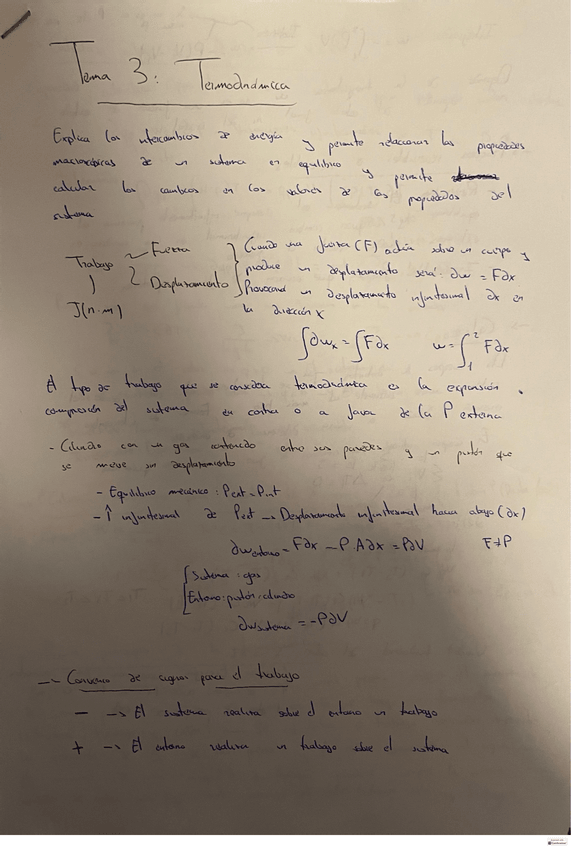 Tema 3: Termodinámica
Explica los intercambios de energía y permite relacionar las propiedades
macroscópicas de un sistema en equilibrio y permite
calcular los cambios en los valores de las propiedades del
sistema
Trabajo
Fuerza
Desplazamiento
J(n·m)
Cuando una fuerza (F) actúa sobre un cuerpo y
produce un desplazamiento será: ∂w = F∂x
Provocará un desplazamiento infinitesimal ∂x en
la dirección x
∫∂wₓ = ∫F∂x w = ∫₁² F∂x
El tipo de trabajo que se considera termodinámica es la expansión o
compresión del sistema en contra o a favor de la P externa
- Cilindro con un gas contenido entre sus paredes y un pistón que
se mueve sin desplazamiento
- Equilibrio mecánico: Pext = Pint
- ↑ infinitesimal de Pext → Desplazamiento infinitesimal hacia abajo (∂x)
∂w entorno = F∂x = P·A∂x = P∂V F≠P
Sistema: gas
Entorno: pistón, cilindro
∂w sistema = -P∂V
→ Convenio de signos para el trabajo
- → El sistema realiza sobre el entorno un trabajo
+ → El entorno realiza un trabajo sobre el sistema